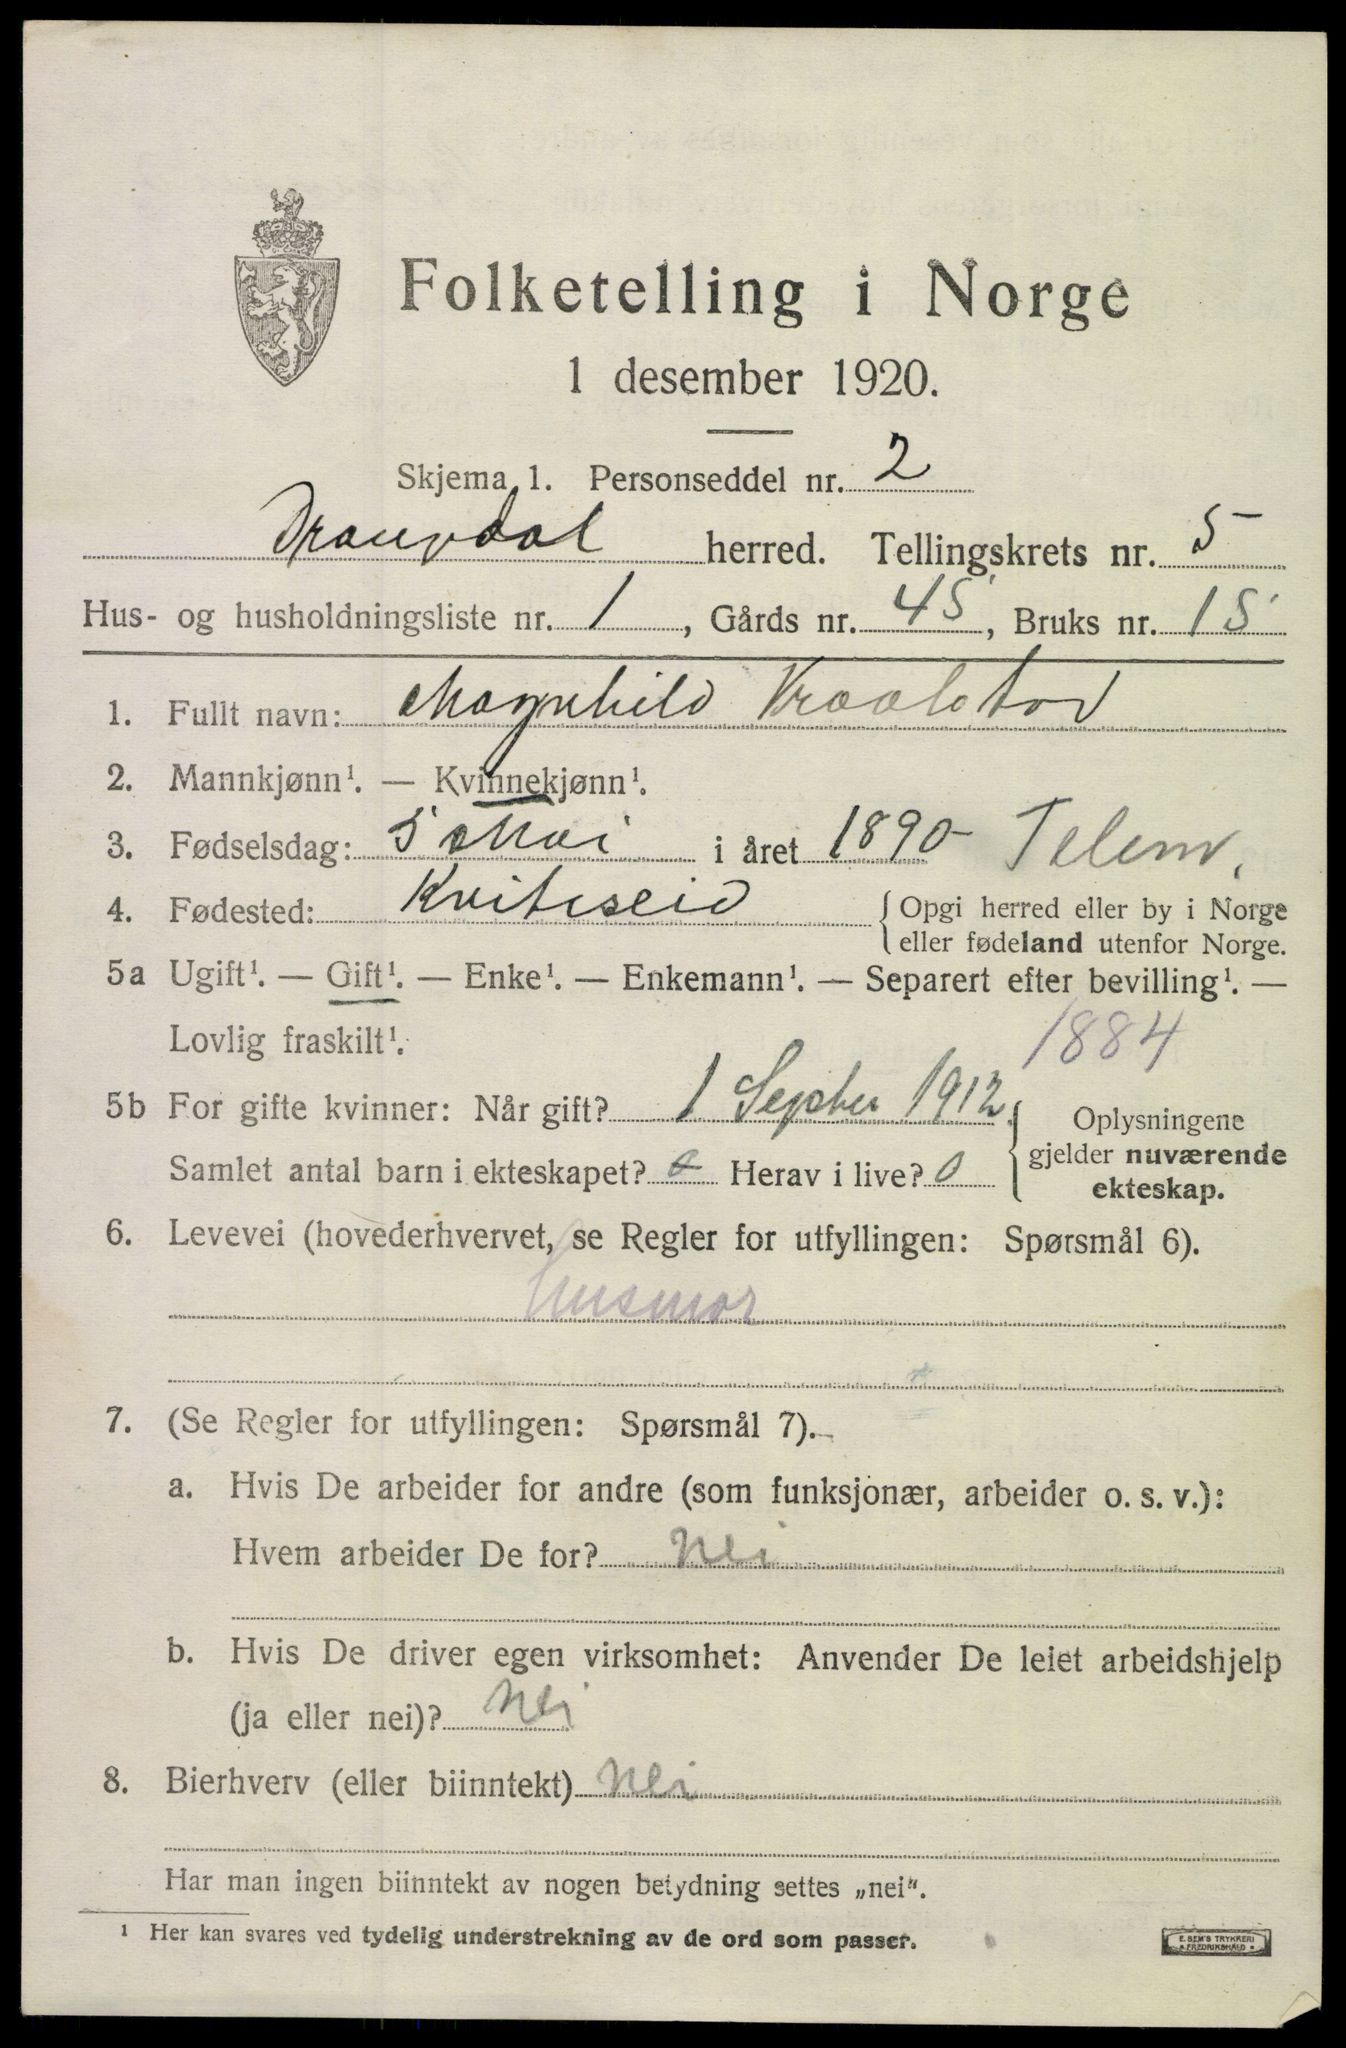 Folketelling i Norge
1 desember 1920.
Skjema 1. Personseddel nr. 2
herred. Tellingskrets nr. 5
Hus- og husholdningsliste nr. 1, Gårds nr. 45, Bruks nr. 15
1. Fullt navn: Magnhild
2. Mannkjønn¹. — Kvinnekjønn¹.
3. Fødselsdag: 5 Mai i året 1890 Telem.
4. Fødested: Kviteseid { Opgi herred eller by i Norge
eller fødeland utenfor Norge.
5a Ugift¹. — Gift¹. — Enke¹. — Enkemann¹. — Separert efter bevilling¹. —
Lovlig fraskilt¹. 1884
5b For gifte kvinner: Når gift? 1 Septber 1912. { Oplysningene
Samlet antal barn i ekteskapet? 0 Herav i live? 0 gjelder nuværende
ekteskap.
6. Levevei (hovederhvervet, se Regler for utfyllingen: Spørsmål 6).
Husmor
7. (Se Regler for utfyllingen: Spørsmål 7).
a. Hvis De arbeider for andre (som funksjonær, arbeider o. s. v.):
Hvem arbeider De for? Nei
b. Hvis De driver egen virksomhet: Anvender De leiet arbeidshjelp
(ja eller nei)? Nei
8. Bierhverv (eller biinntekt) Nei
Har man ingen biinntekt av nogen betydning settes „nei“.
¹ Her kan svares ved tydelig understrekning av de ord som passer.
E. SEM'S TRYKKERI
FREDRIKSHALD